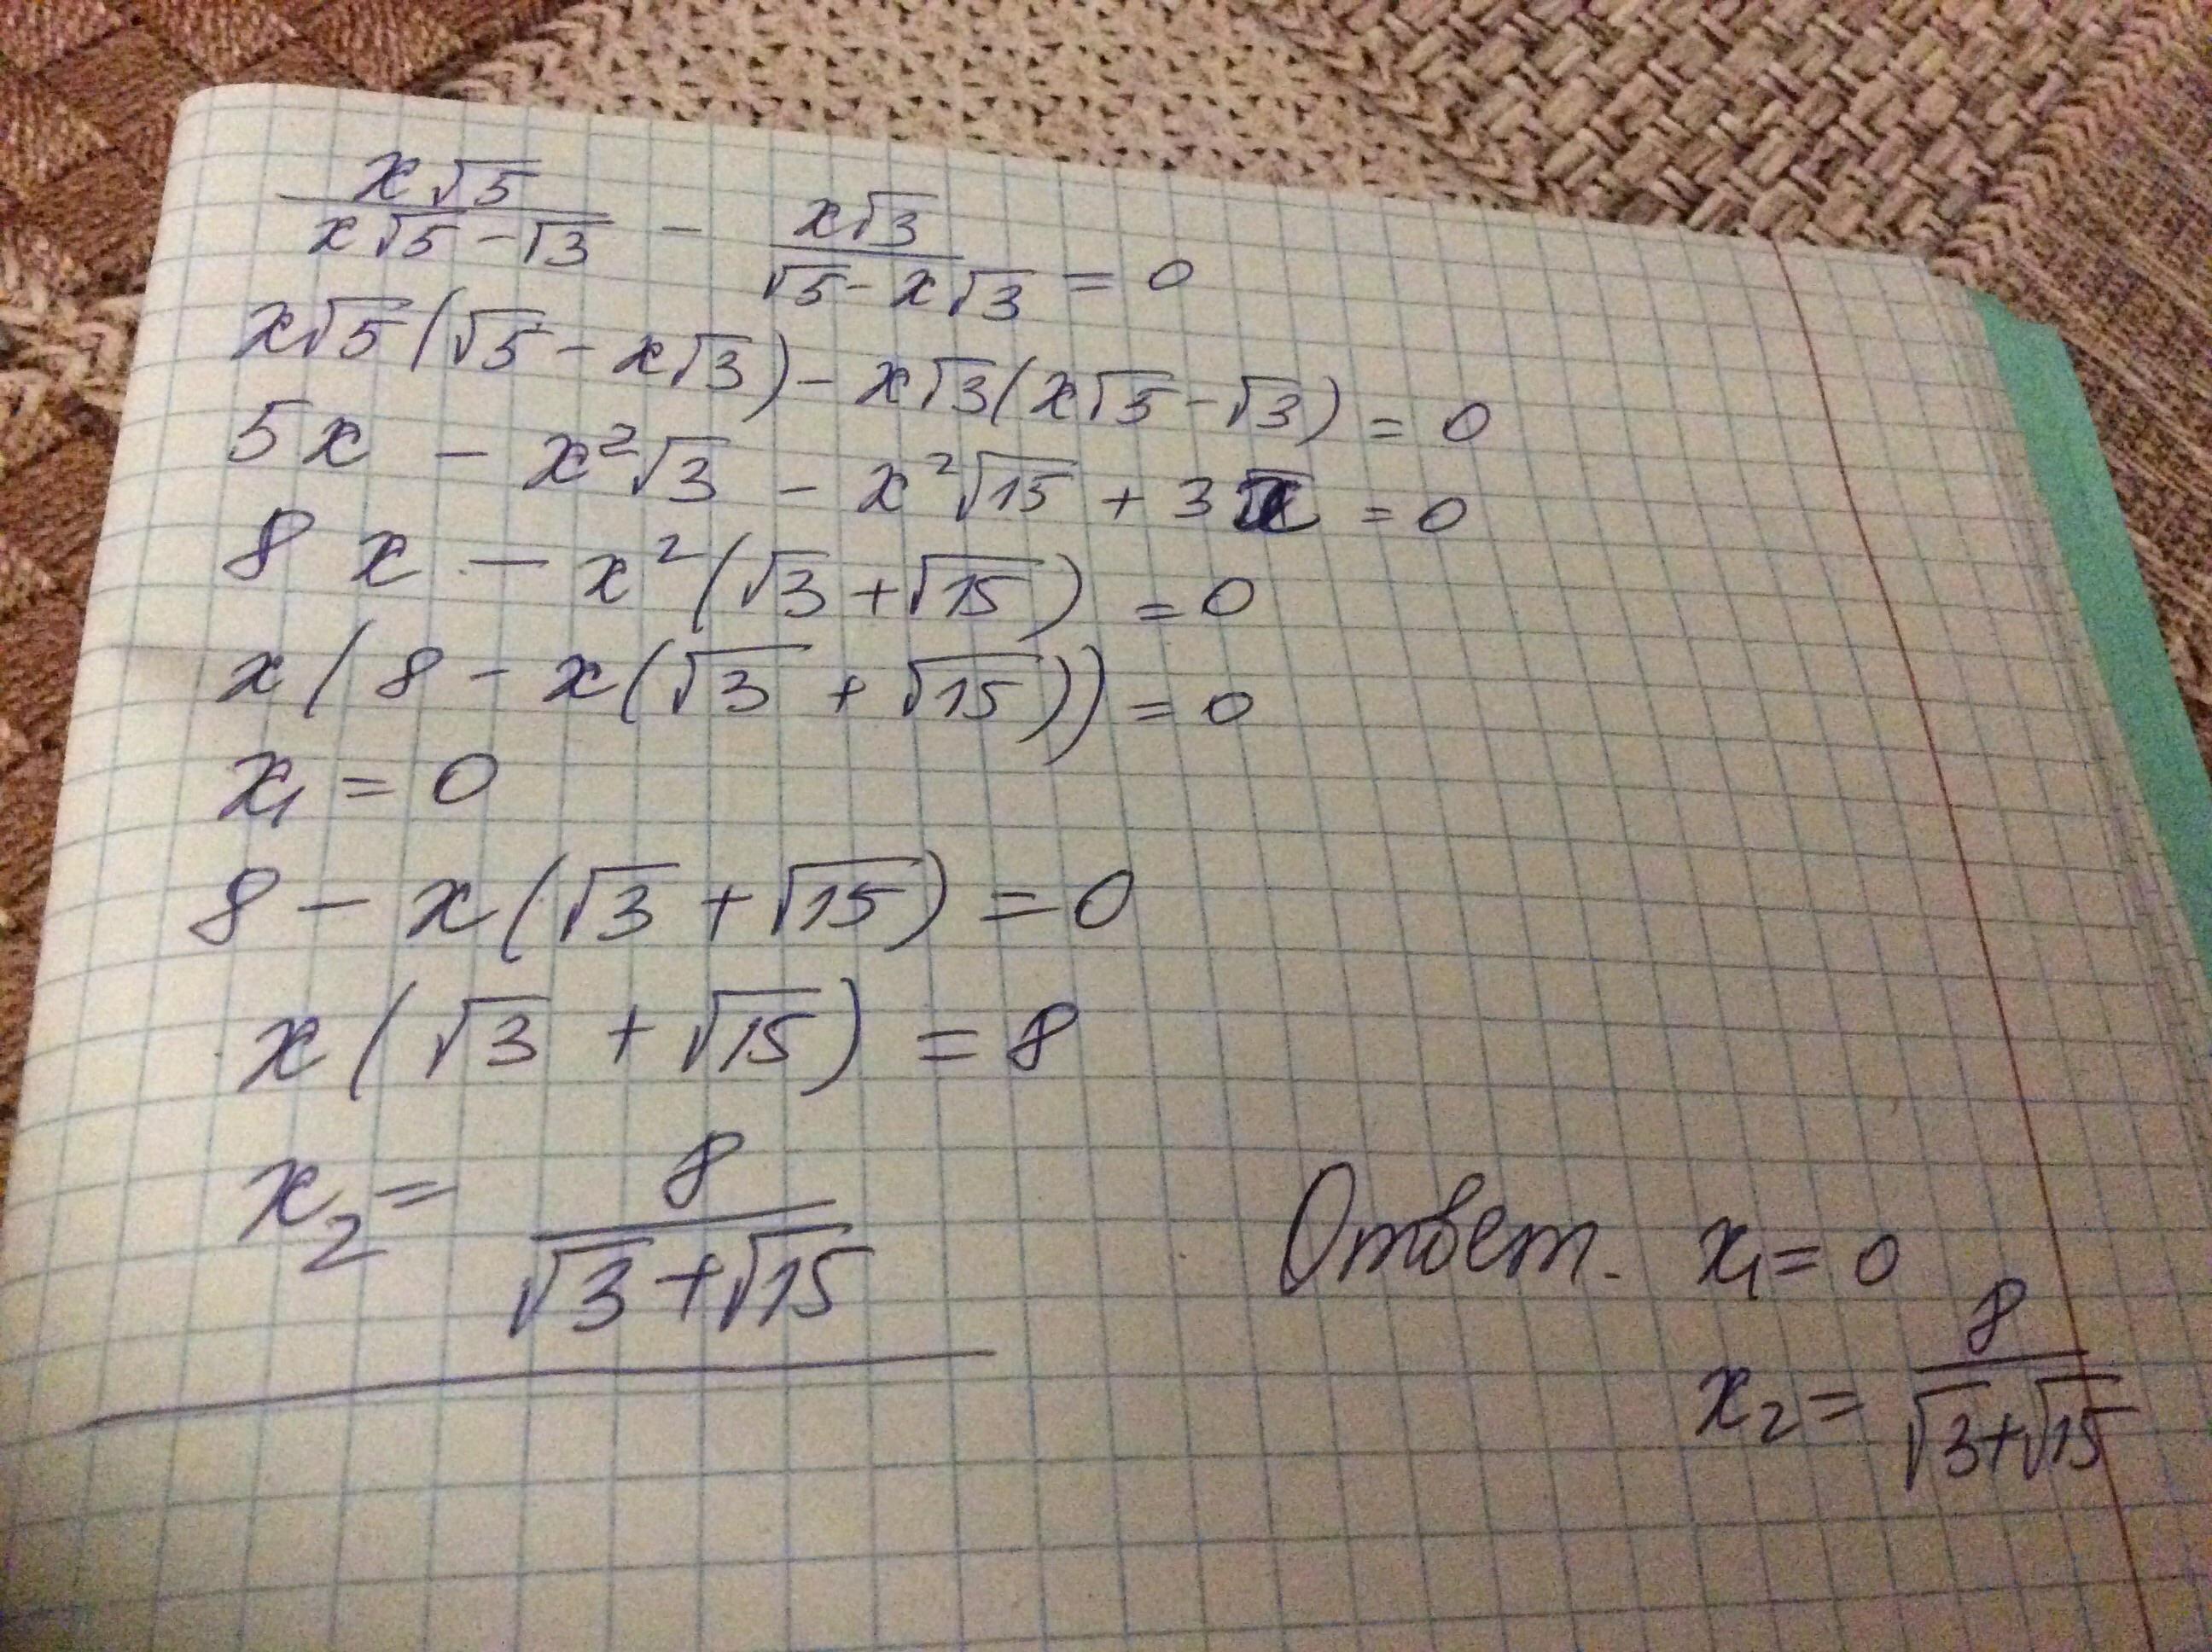 x√5/(x√5-√3) - x√3/(√5-x√3) = 0
x√5(√5-x√3)-x√3(x√5-√3)=0
5x - x²√3 - x²√15 + 3x = 0
8x - x²(√3+√15) = 0
x(8-x(√3+√15))=0
x₁ = 0
8-x(√3+√15)=0
x(√3+√15)=8
x₂ = 8/(√3+√15)
Ответ. x₁=0
x₂ = 8/(√3+√15)